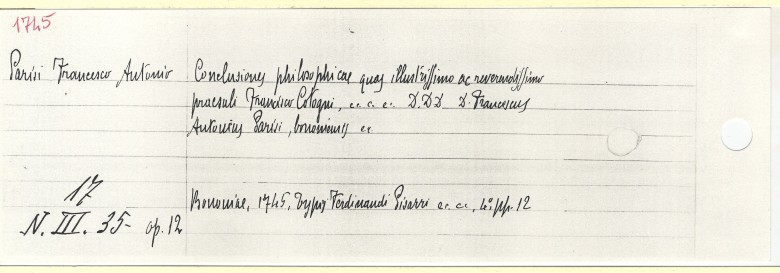 1745
Parisi Francesco Antonio
Conclusiones philosophicae quas illustrissimo ac reverendissimo
praesuli Francisco Cotogni, ec. c. ec. D.DD D. Franciscus
Antonius Parisi, bononiensis ec
17
N. III. 35- op. 12
Bononiae, 1745, typis Ferdinandi Pisarri ec. ec., 4º pp. 12